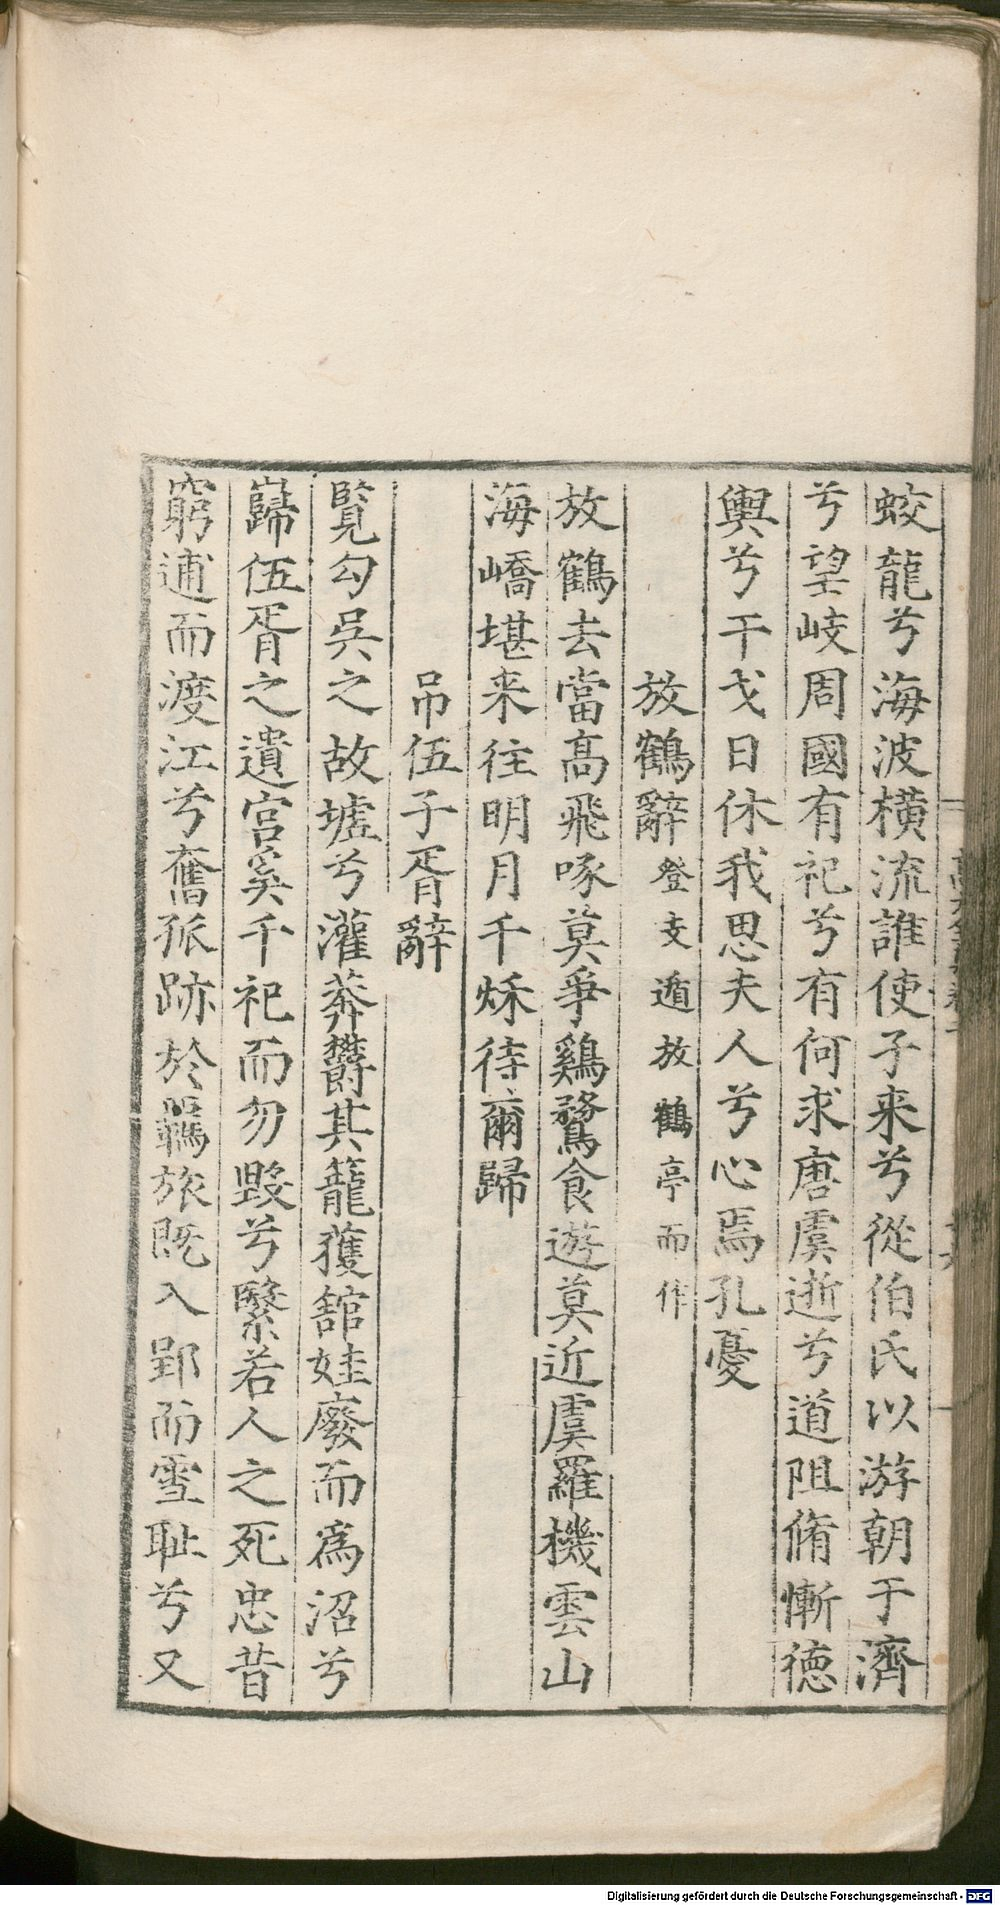 蛟龍兮海波橫流誰使子来兮從伯氏以游朝于濟
兮望岐周國有祀兮有何求唐虞逝兮道阻脩慚德
輿兮干戈日休我思夫人兮心焉孔憂
放鶴辭登支遁放鶴亭而作
放鶴去當高飛啄莫爭鷄鶩食遊莫近虞羅機雲山
海嶠堪来往明月千秌待爾歸
吊伍子胥辭
覧勾吳之故墟兮灌莽欝其籠獲舘娃廢而為沼兮
巋伍胥之遺宫奚千祀而勿毀兮繄若人之死忠昔
窮逋而渡江兮奮孤跡於羈旅既入郢而雪耻兮又
Digitalisierung gefördert durch die Deutsche Forschungsgemeinschaft - DFG